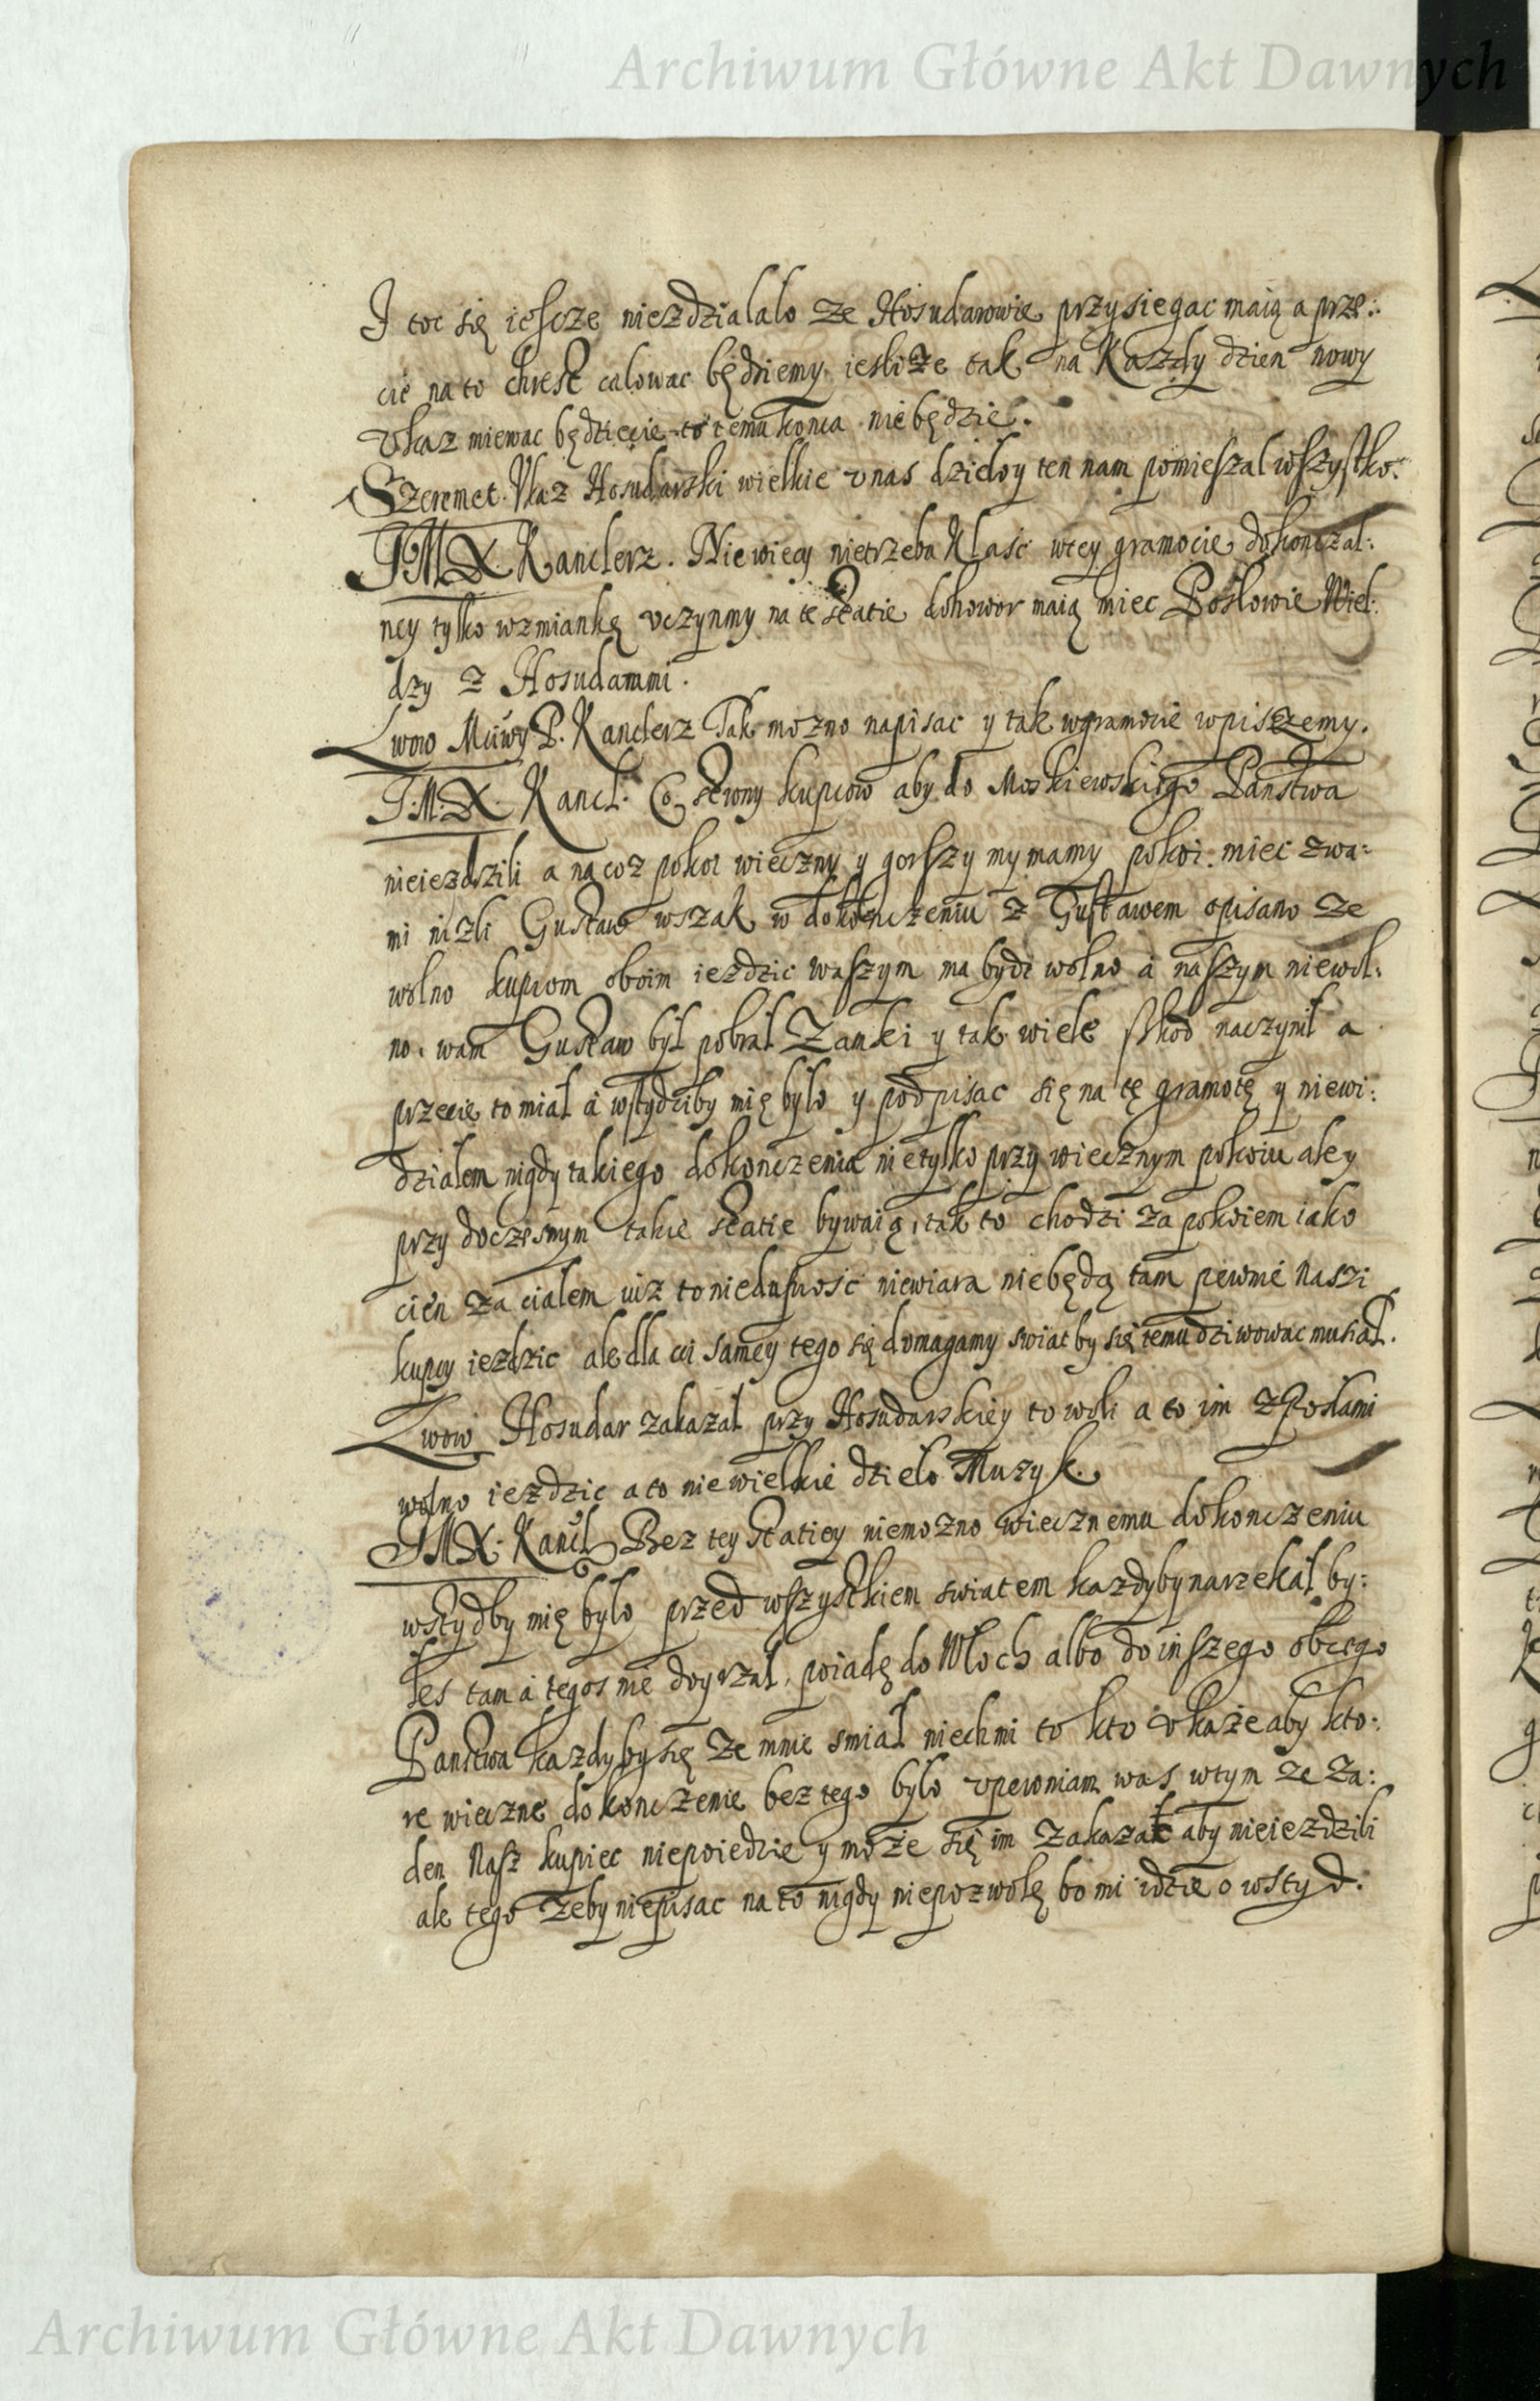 Archiwum Główne Akt Dawnych
I toc się iescze niezdzialalo ze Hosudarowie przysiegac maią a prze:
cie na to chrest calowac będziemy iesliże tak na Kazdy dzien nowy
vkaz miewac będziecie to temu konca nie będzie.
Szeremet. Vkaz Hosudarski wielkie v nas dzieło y ten nam pomieszal wszystko.
JMX. Kanclerz. Nie wiecy nietrzeba klaść wtey gramocie dokonczal:
ney tylko wzmiankę vczynmy na te statie dohowor maią miec Posłowie Wiel:
dzy z Hosudarmi.
Lwow Muwy P. Kanclerz Tak mozno napisac y tak wgramocie wpiszemy.
J.M.X. Kancl. Co strony kupcow aby do Moskiewskiego Panstwa
nieiezdzili a na coz pokoi wieczny y gorszy my mamy pokoi miec zwa:
mi nizli Gustaw wszak w dokonczeniu z Gustawem opisano ze
wolno kupcom oboim iezdzic waszym ma bydz wolno a naszym niewol:
no. wam Gustaw był pobrał Zamki y tak wiele szkod naczynił a
przecie to miał a wstydziłby mię było y podpisac się na tę gramotę y niewi:
działem nigdy takiego dokonczenia nie tylko przy wiecznym pokoiu ale y
przy doczesnym takie statie bywaią, tak to chodzi za pokoiem iako
cien za cialem iuz to niedufnosc niewiara nie będą tam pewnie naszi
kupcy iezdzic ale dla cci samey tego się domagamy swiat by się temu dziwowac musiał.
Lwow Hosudar zakazał przy Hosudarskiey to woli a to im z Posłami
wolno iezdzic a to nie wielkie dzieło Muzyk.
JMX. Kancl. Bez tey statiey niemozno wiecznemu dokonczeniu
wstydby mię było przed wszystkiem swiatem kazdyby narzekał by:
łes tam a tegos nie doyrzał, poiadę do Włoch albo do inszego obcego
Panstwa kazdyby się ze mnie smiał niech mi to kto vkaże aby kto:
re wieczne dokonczenie bez tego było vpewniam was wtym ze za:
den Nasz kupiec niepoiedzie y może się im zakazać aby nieiezdzili
ale tego zeby niepisac na to nigdy niepozwolę bo mi idzie o wstyd.
Archiwum Główne Akt Dawnych